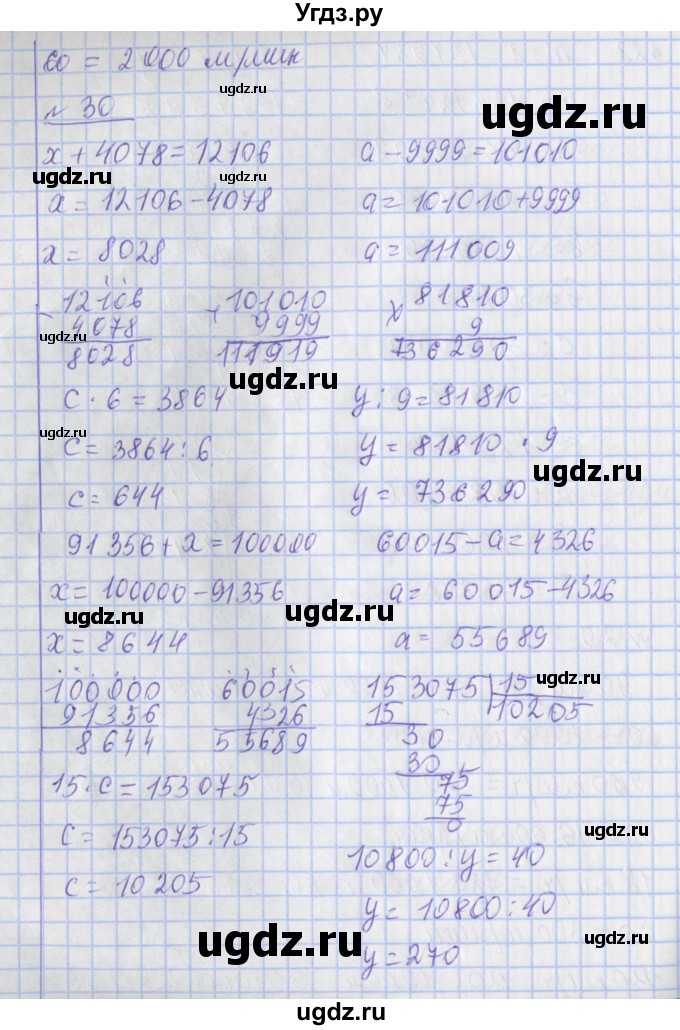 Угдз.ру
60 = 2000 м/мин
ugdz.ru
№ 30
ugdz.ru
x + 4078 = 12106
a - 9999 = 101010
ugdz.ru
ugdz.ru
x = 12106 - 4078
a = 101010 + 9999
x = 8028
a = 111009
12106
101010
81810
4078
9999
9
ugdz.ru
ugdz.ru
8028
111919
736290
ugdz.ru
c · 6 = 3864
y : 9 = 81810
ugdz.ru
c = 3864 : 6
y = 81810 · 9
ugdz.ru
c = 644
y = 736290
ugdz.ru
91356 + x = 100000
60015 - a = 4326
x = 100000 - 91356
a = 60015 - 4326
ugdz.ru
ugdz.ru
x = 8644
a = 55689
ugdz.ru
100000
60015
153075 15
91356
4326
15
10205
8644
55689
30
30
15 · c = 153075
75
75
0
ugdz.ru
c = 153075 : 15
10800 : y = 40
ugdz.ru
c = 10205
y = 10800 : 40
ugdz.ru
ugdz.ru
y = 270
ugdz.ru